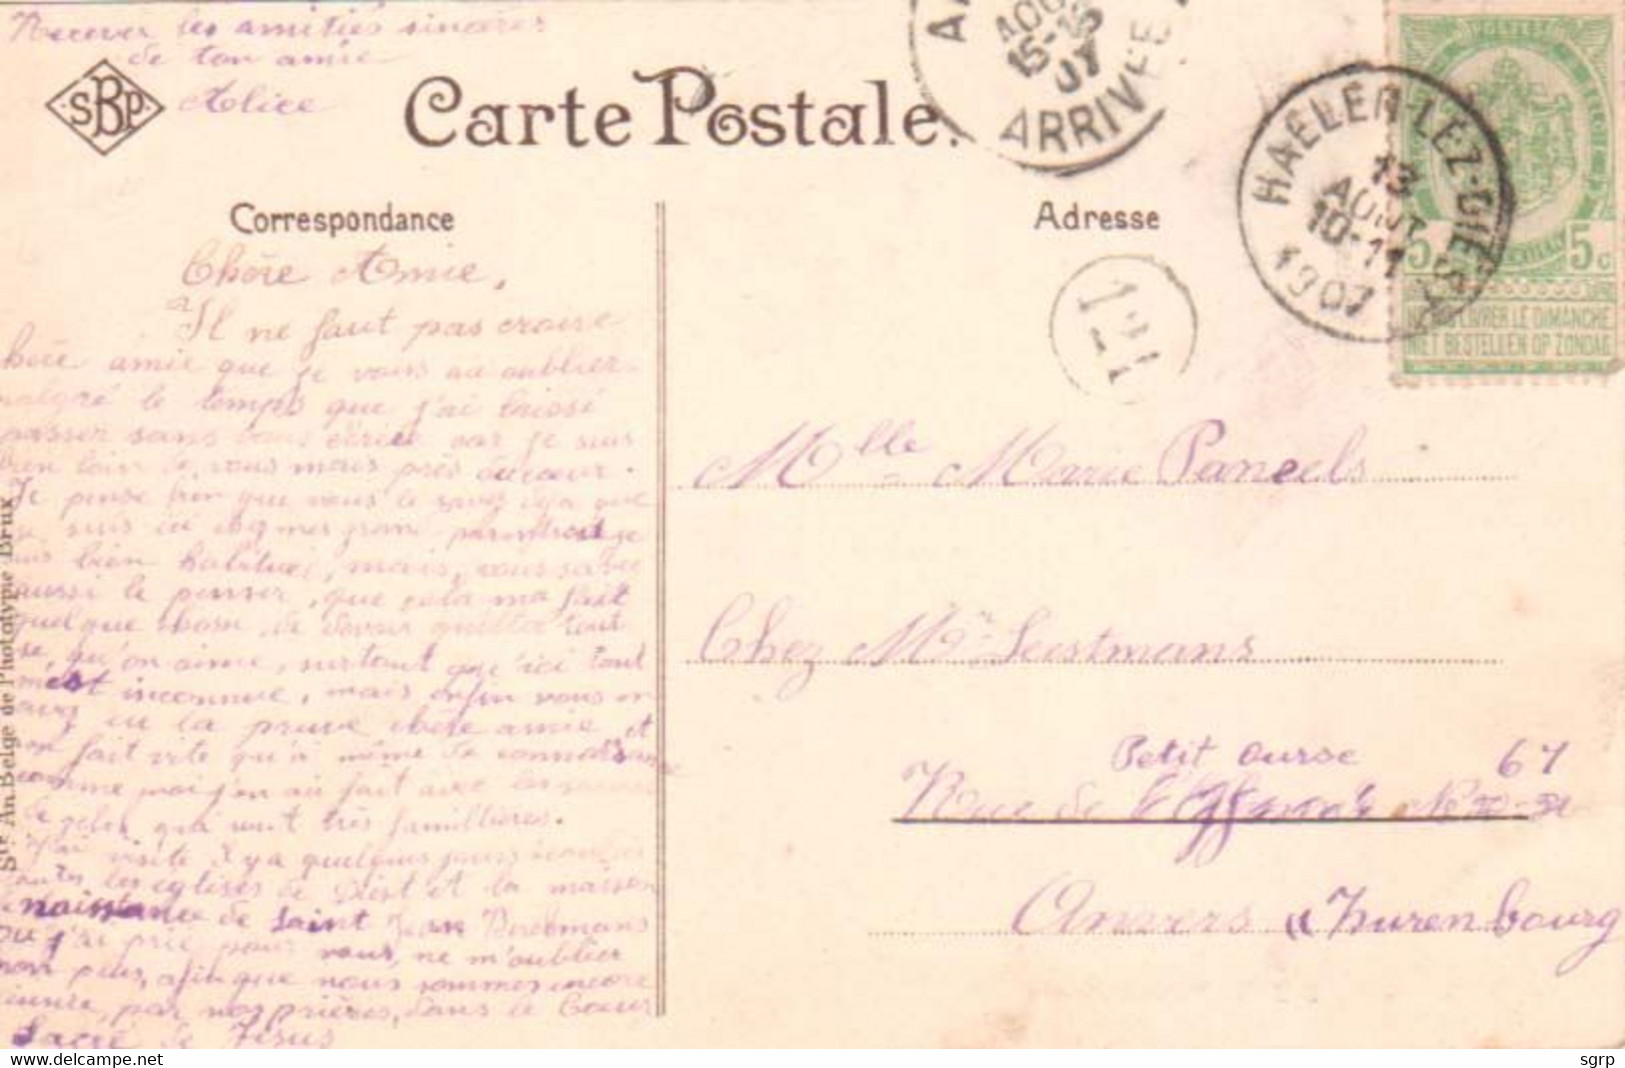 Recever les amitiés sincères
de ton amie
Alice
SBP
Carte Postale.
AOU
15-
07
ARRIVÉE
HAELEN-LEZ-DIEST
13
AOUT
10-11
1907
POSTES
5 5c
NE PAS LIVRER LE DIMANCHE
NIET BESTELLEN OP ZONDAG
Correspondance
Adresse
121
Chère Amie,
Il ne faut pas croire
chère amie que je vous ai oublier
malgré le temps que j'ai laissé
passer sans vous écrire car je suis
bien loin de vous mais près du cœur.
Je pense bien que vous le savez déja que
je suis ici chez mes grand parents et je
suis bien habituer, mais, vous savez
aussi le penser, que cela ma fait
quelque chose, de devoir quitter tout
se, qu'on aime, surtout que ici tout
m'est inconnue, mais enfin vous en
avez eu la preuve chère amie et
on fait vite qu'à même de connaissance
comme moi j'en ai fait avec
de celer qui sont très famillières.
J'ai visité il y a quelques jours
toutes les églises de Diest et la maison
naissance de Saint Jean Berchmans
ou j'ai prié pour vous, ne m'oublier
non plus, afin que nous sommes encore
réunie, par nos prières, dans le Cœur
Sacré de Jésus
Sté An. Belge de Phototypie Brux
Mlle Marie Paneels
Chez Mr Seestmans
Petit Ourse 67
Rue de
Anvers (Zurenbourg
sgrp